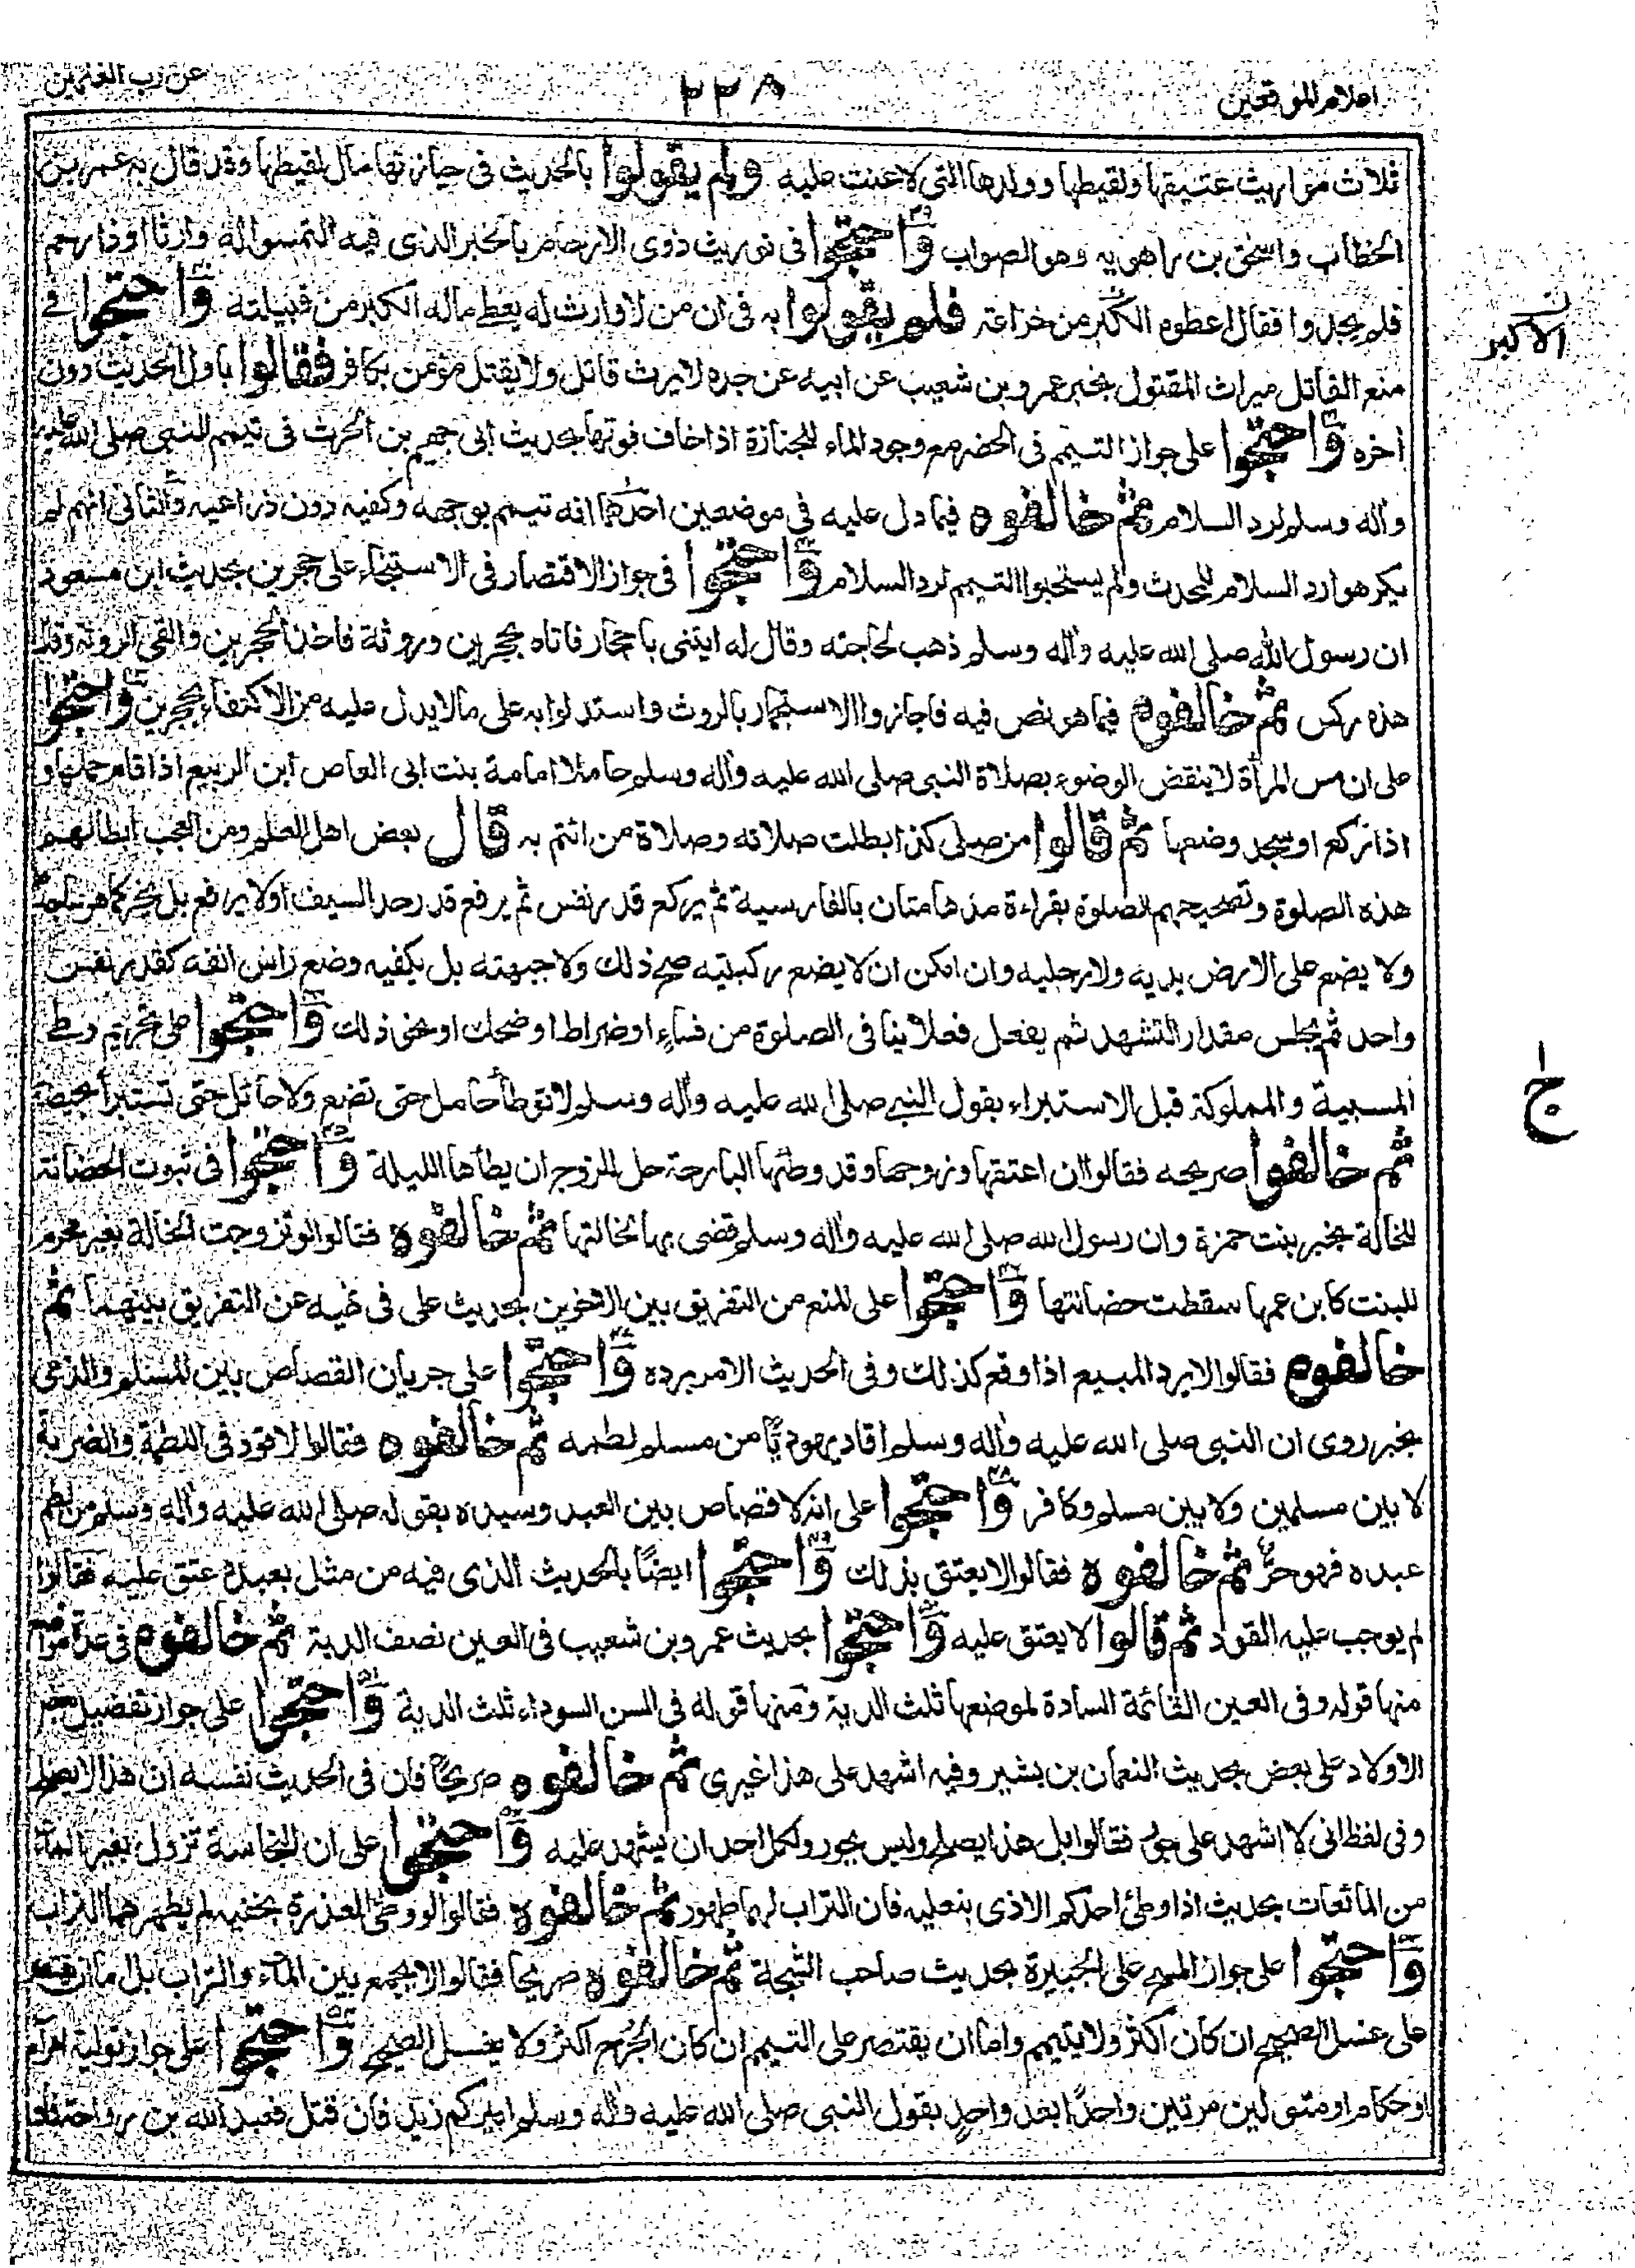 اعلام الموقعين
٢٢٨
عن رب العلمين
ثلاث مواريث عتيقها ولقيطها وولدها التي لاعنت عليه ولم يقولوا بالحديث في حيازتها مال لقيطها وقد قال به عمر بن
الخطاب واسحق بن راهويه وهو الصواب واحتجوا في توريث ذوى الارحام بالخبر الذى فيه التمسوا له وارثا او ذا رحم
فلم يجدوا فقال اعطوه الكبر من خزاعة فلم يقولوا به في ان من لا وارث له يعطى ماله الكبر من قبيلته واحتجوا في
الاكبر
منع القاتل ميراث المقتول بخبر عمرو بن شعيب عن ابيه عن جده لا يرث قاتل ولا يقتل مؤمن بكافر فقالوا باول الحديث دون
اخره واحتجوا على جواز التيمم في الحضر مع وجود الماء للجنازة اذا خاف فوتها بحديث ابي جهيم بن الحرث في تيمم النبي صلى الله عليه
واله وسلم لرد السلام ثم خالفوه فيما دل عليه في موضعين احدهما انه تيمم بوجهه وكفيه دون ذراعيه والثاني انهم لم
يكرهوا رد السلام للمحدث ولم يستحبوا التيمم لرد السلام واحتجوا في جواز الاقتصار في الاستنجاء على حجرين بحديث ابن مسعود
ان رسول الله صلى الله عليه واله وسلم ذهب لحاجته وقال له ايتني باحجار فاتاه بحجرين وروثة فاخذ الحجرين والقى الروثة وقال
هذه ركس ثم خالفوه فيما هو نص فيه فاجازوا الاستجمار بالروث واستدلوا به على ما لا يدل عليه من الاكتفاء بحجرين واحتجوا
على ان مس المرأة لا ينقض الوضوء بصلاة النبي صلى الله عليه واله وسلم حاملا امامة بنت ابي العاص ابن الربيع اذا قام حملها و
اذا ركع او سجد وضعها ثم قالوا من صلى كذا بطلت صلاته وصلاة من ائتم به قال بعض اهل العلم ومن العجب ابطالهم
هذه الصلوة وتصحيحهم الصلوة بقراءة مدهامتان بالفارسية ثم يركع قدر نفس ثم يرفع قدر حد السيف او لا يرفع بل يخر كما هو ساجدا
ولا يضع على الارض يديه ولا رجليه وان امكن ان لا يضع ركبتيه صح ذلك ولا جبهته بل يكفيه وضع راس انفه كقدر نفس
واحد ثم يجلس مقدار التشهد ثم يفعل فعلا ينافى الصلوة من فساء او ضراط او ضحك او نحو ذلك واحتجوا على تحريم وطى
المسبية والمملوكة قبل الاستبراء بقول النبي صلى الله عليه واله وسلم لا توطأ حامل حتى تضع ولا حائل حتى تستبرأ بحيضة
ج
ثم خالفوا صريحه فقالوا ان اعتقها وزوجها وقد وطئها البارحة حل للزوج ان يطأها الليلة واحتجوا في ثبوت الحضانة
للخالة بخبر بنت حمزة وان رسول الله صلى الله عليه واله وسلم قضى بها لخالتها ثم خالفوه فقالوا لو تزوجت الخالة بغير محرم
للبنت كابن عمها سقطت حضانتها واحتجوا على المنع من التفريق بين الاخوين بحديث على في نهيه عن التفريق بينهما ثم
خالفوه فقالوا لا يرد المبيع اذا وقع كذلك وفى الحديث الامر برده واحتجوا على جريان القصاص بين المسلم والذمى
بخبر روى ان النبي صلى الله عليه واله وسلم اقاد يهوديا من مسلم لطمه ثم خالفوه فقالوا لا قود في اللطمة والضربة
لا بين مسلمين ولا بين مسلم وكافر واحتجوا على انه لا قصاص بين العبد وسيده بقوله صلى الله عليه واله وسلم من لطم
عبده فهو حر ثم خالفوه فقالوا لا يعتق بذلك واحتجوا ايضا بالحديث الذى فيه من مثل بعبده عتق عليه فقالوا
لم يوجب عليه القود ثم قالوا لا يعتق عليه واحتجوا بحديث عمرو بن شعيب في العين نصف الدية ثم خالفوه في عدة مواضع
منها قوله وفى العين القائمة السادة لموضعها ثلث الدية ومنها قوله في السن السوداء ثلث الدية واحتجوا على جواز تفضيل بعض
الاولاد على بعض بحديث النعمان بن بشير وفيه اشهد على هذا غيرى ثم خالفوه صريحا فان في الحديث نفسه ان هذا لا يصلح
وفى لفظ انى لا اشهد على جور فقالوا بل هذا يصلح وليس بجور ولكل احد ان يشهد عليه واحتجوا على ان النجاسة تزول بغير الماء
من المائعات بحديث اذا وطئ احدكم الاذى بنعليه فان التراب لهما طهور ثم خالفوه فقالوا لو وطئ العذرة بخفيه لم يطهرهما التراب
واحتجوا على جواز المسح على الجبيرة بحديث صاحب الشجة ثم خالفوه صريحا فقالوا لا يجمع بين الماء والتراب بل اما ان يقتصر
على غسل الصحيح ان كان اكثر ولا يتيمم واما ان يقتصر على التيمم ان كان الجرح اكثر ولا يغسل الصحيح واحتجوا على جواز تولية امراء
او حكام او متولين مرتين واحدا بعد واحد بقول النبي صلى الله عليه واله وسلم اميركم زيد فان قتل فعبد الله بن رواحة فان